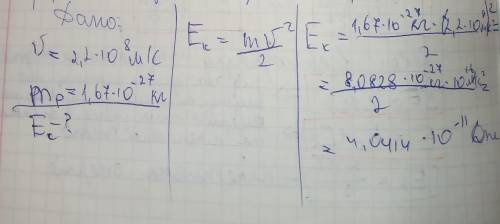 Дано:
V = 2,2·10⁸ м/с
mp = 1,67·10⁻²⁷ кг
Eк - ?
Eк = mV²/2
Eк = 1,67·10⁻²⁷ кг · (2,2·10⁸ м/с)²/2 =
= 8,0828·10⁻²⁷ кг·10¹⁶ м/с²/2
= 4,0414·10⁻¹¹ Дж